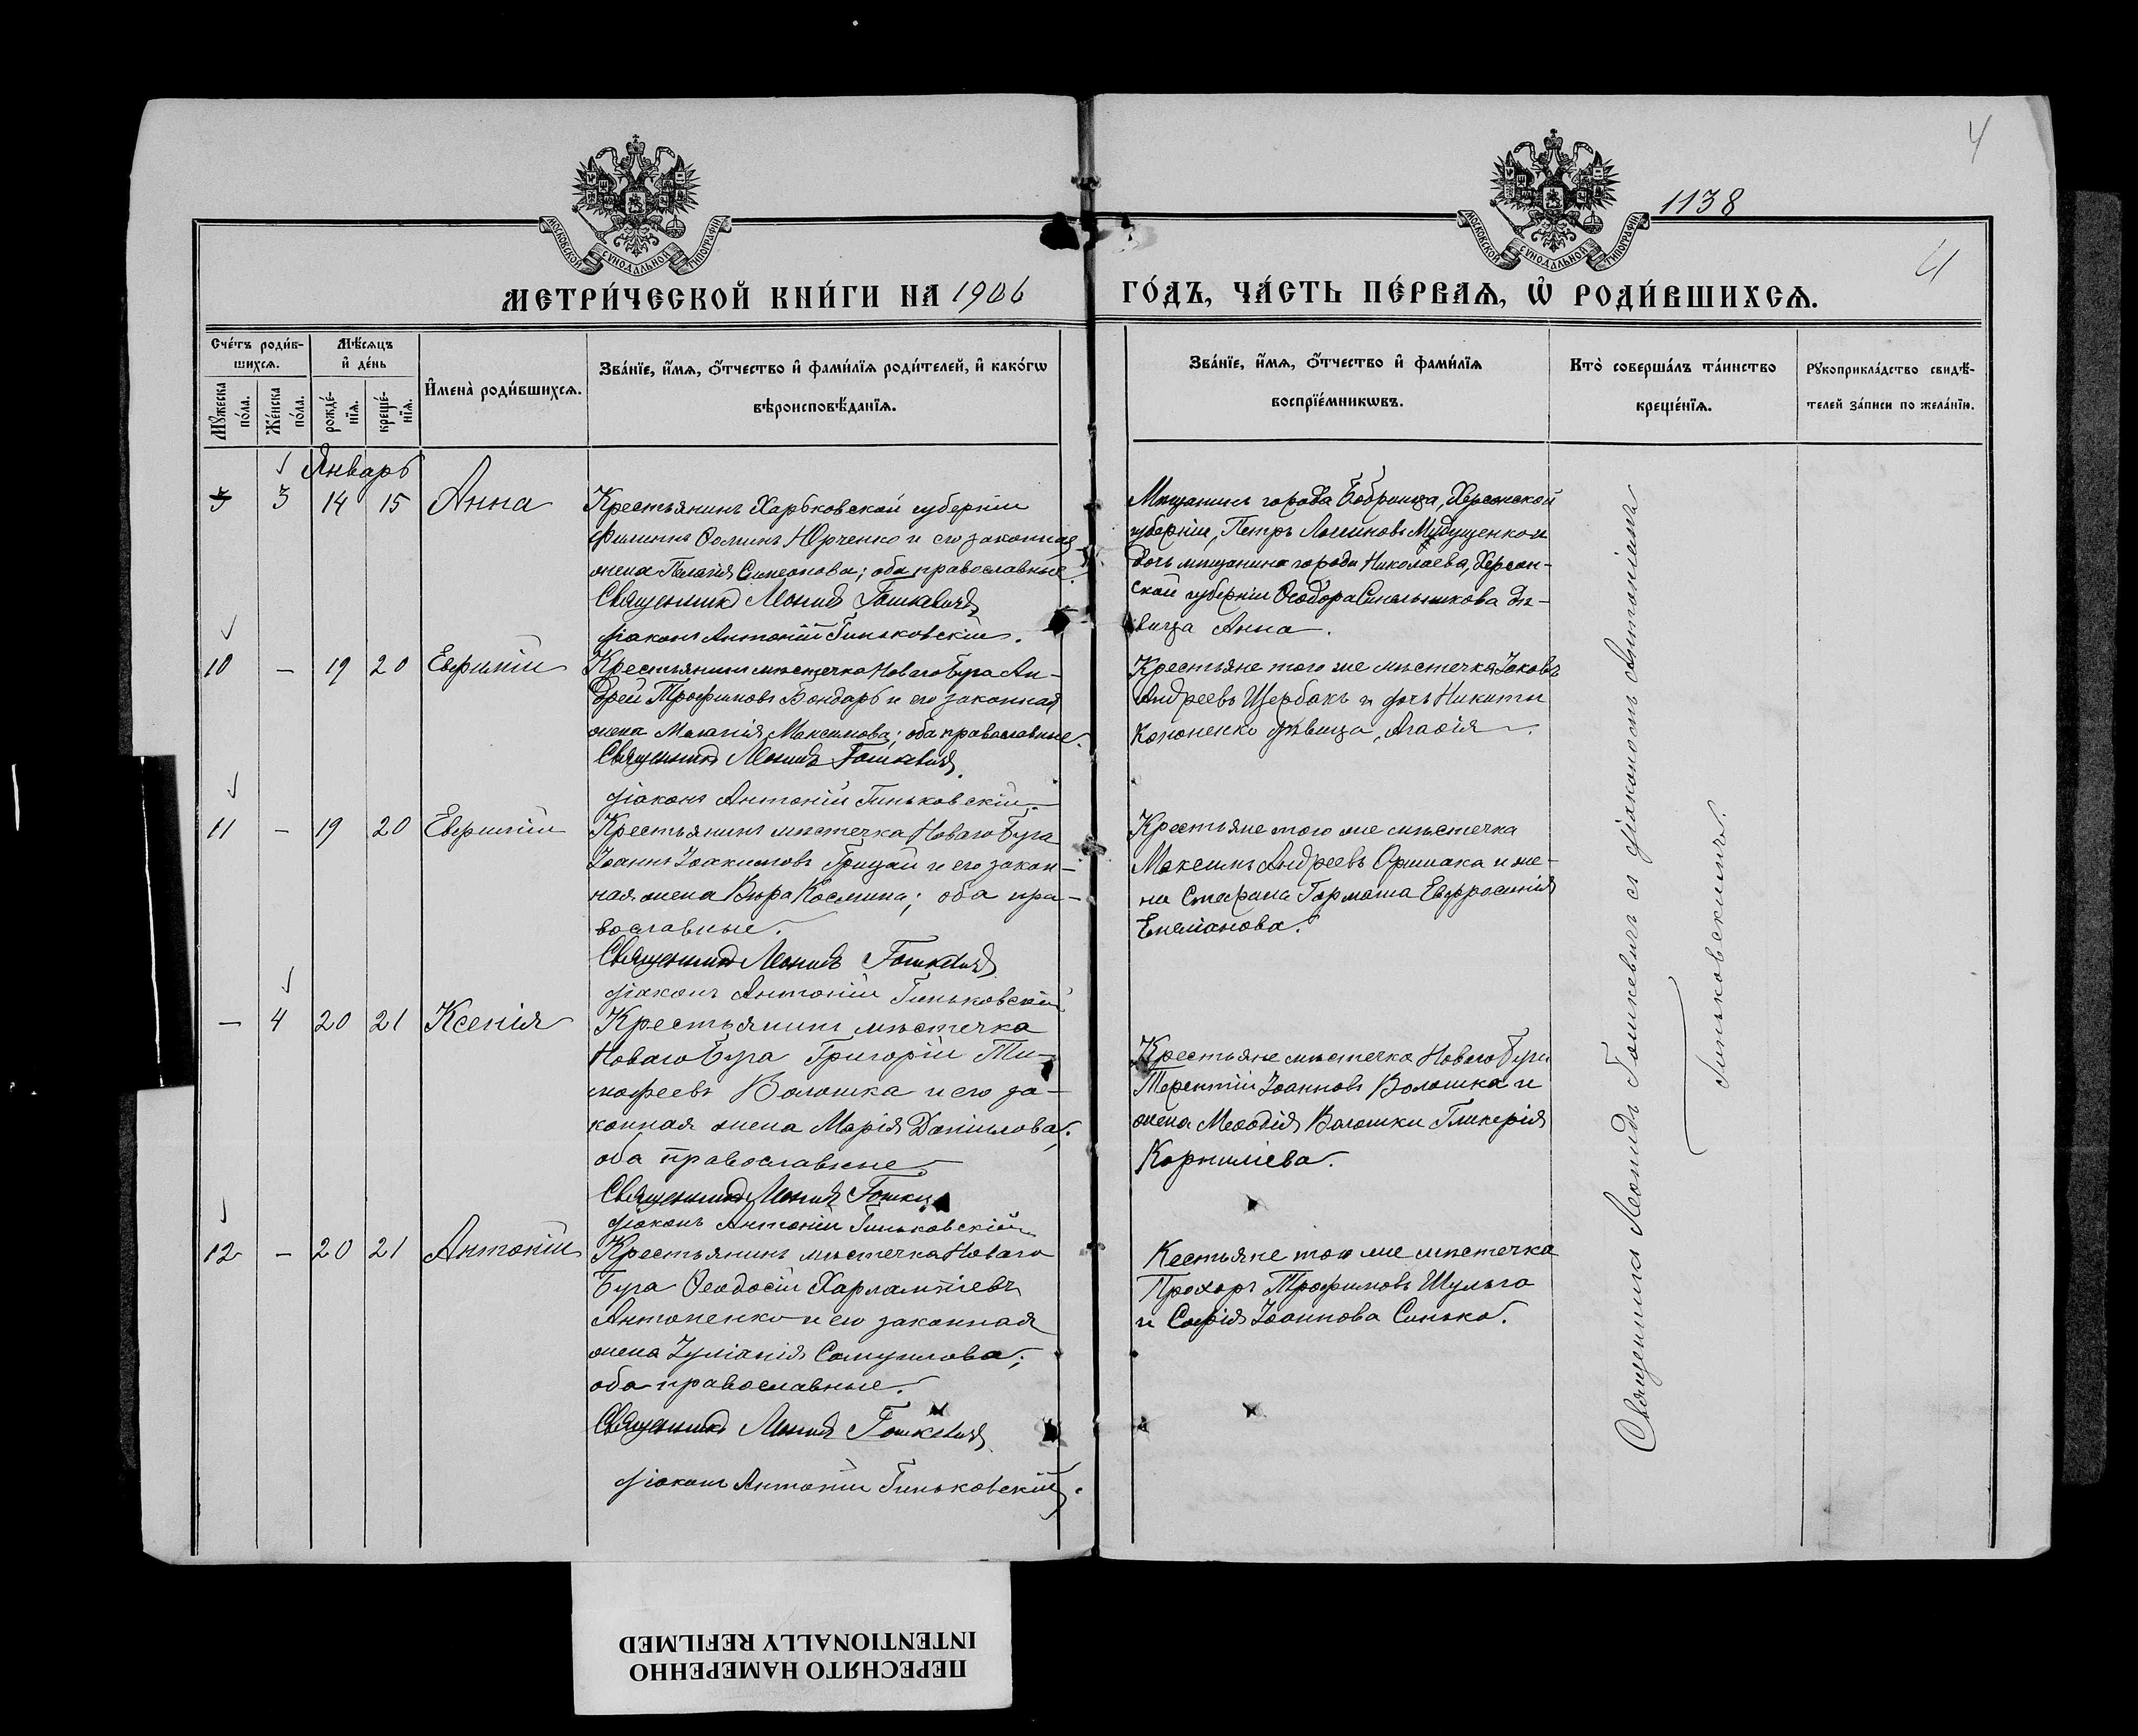 4
1138
4
МОСКОВСКОЙ СУНОДАЛЬНОЙ ТИПОГРАФІИ
МОСКОВСКОЙ СУНОДАЛЬНОЙ ТИПОГРАФІИ
МЕТРИ́ЧЕСКОЙ КНИ́ГИ НА 1906
ГО́ДЪ, ЧА́СТЬ ПЕ́РВАѦ, Ѡ҆ РОДИ́ВШИХСѦ.
Сче́тъ роди́в-
шихсѧ.
Мꙋ́жеска по́ла.
Же́нска по́ла.
Мѣ́сѧцъ
и҆ де́нь
рожде́-
нїѧ.
креще́-
нїѧ.
И҆мена̀ роди́вшихсѧ.
Зва́нїе, и҆́мѧ, ѻ҆́тчество и҆ фами́лїѧ роди́телей, и҆ како́гѡ
вѣроисповѣ́данїѧ.
Зва́нїе, и҆́мѧ, ѻ҆́тчество и҆ фами́лїѧ
воспрїе́мникѡвъ.
Кто̀ соверша́лъ та́инство
креще́нїѧ.
Рꙋкоприкла́дство свидѣ́-
телей за́писи по жела́нїю.
Январь
3 3 14 15 Анна
Крестьянинъ Харьковской губерніи
Филиппъ Ѳоминъ Юрченко и его законная
жена Пелагія Симеонова; оба православные.
Священникъ Леонидъ Гошкевичъ
Діаконъ Антоній Гиньковскій.
Мѣщанинъ города Бобринца, Херсонской
губерніи, Петръ
дочь мѣщанина города Николаева, Херсон-
ской губерніи Ѳеодора Синельникова дѣ-
вица Анна.
10 – 19 20 Евфимій
Крестьянинъ мѣстечка Новаго Буга Ан-
дрей Трофимовъ Бондарь и его законная
жена Меланія Максимова; оба православные.
Священникъ Леонидъ Гошкевичъ.
Діаконъ Антоній Гиньковскій.
Крестьяне того же мѣстечка Іаковъ
Андреевъ Щербакъ и дочь Никиты
Кононенко дѣвица, Агаѳія.
11 – 19 20 Евфимій
Крестьянинъ мѣстечка Новаго Буга
Іоаннъ Іоакимовъ Грицай и его закон-
ная жена Вѣра Косьмина; оба пра-
вославные.
Священникъ Леонидъ Гошкевичъ
Діаконъ Антоній Гиньковскій
Крестьяне того же мѣстечка
Максимъ Андреевъ Оришака и же-
на Стефана Гармаша Евфросинія
Емеліанова.
– 4 20 21 Ксенія
Крестьянинъ мѣстечка
Новаго Буга Григорій Ти-
моѳеевъ Волошка и его за-
конная жена Марія Даніилова;
оба православные.
Священникъ Леонидъ
Діаконъ Антоній Гиньковскій
Крестьяне мѣстечка Новаго Буга
Терентій Іоанновъ Волошка и
жена Меѳодія Волошки Гликерія
Корниліева.
12 – 20 21 Антоній
Крестьянинъ мѣстечка Новаго
Буга Ѳеодосій Харлампіевъ
Антоненко и его законная
жена Іуліанія Самуилова;
оба православные.
Священникъ Леонидъ Гошкевичъ
Діаконъ Антоній Гиньковскій.
Кестьяне того же мѣстечка
Прохоръ Трофимовъ Шульга
и Софія Іоаннова Синько.
Священникъ Леонидъ Гошкевичъ съ діакономъ Антоніемъ
Гиньковскимъ.
ПЕРЕСНЯТО НАМЕРЕННО
INTENTIONALLY REFILMED